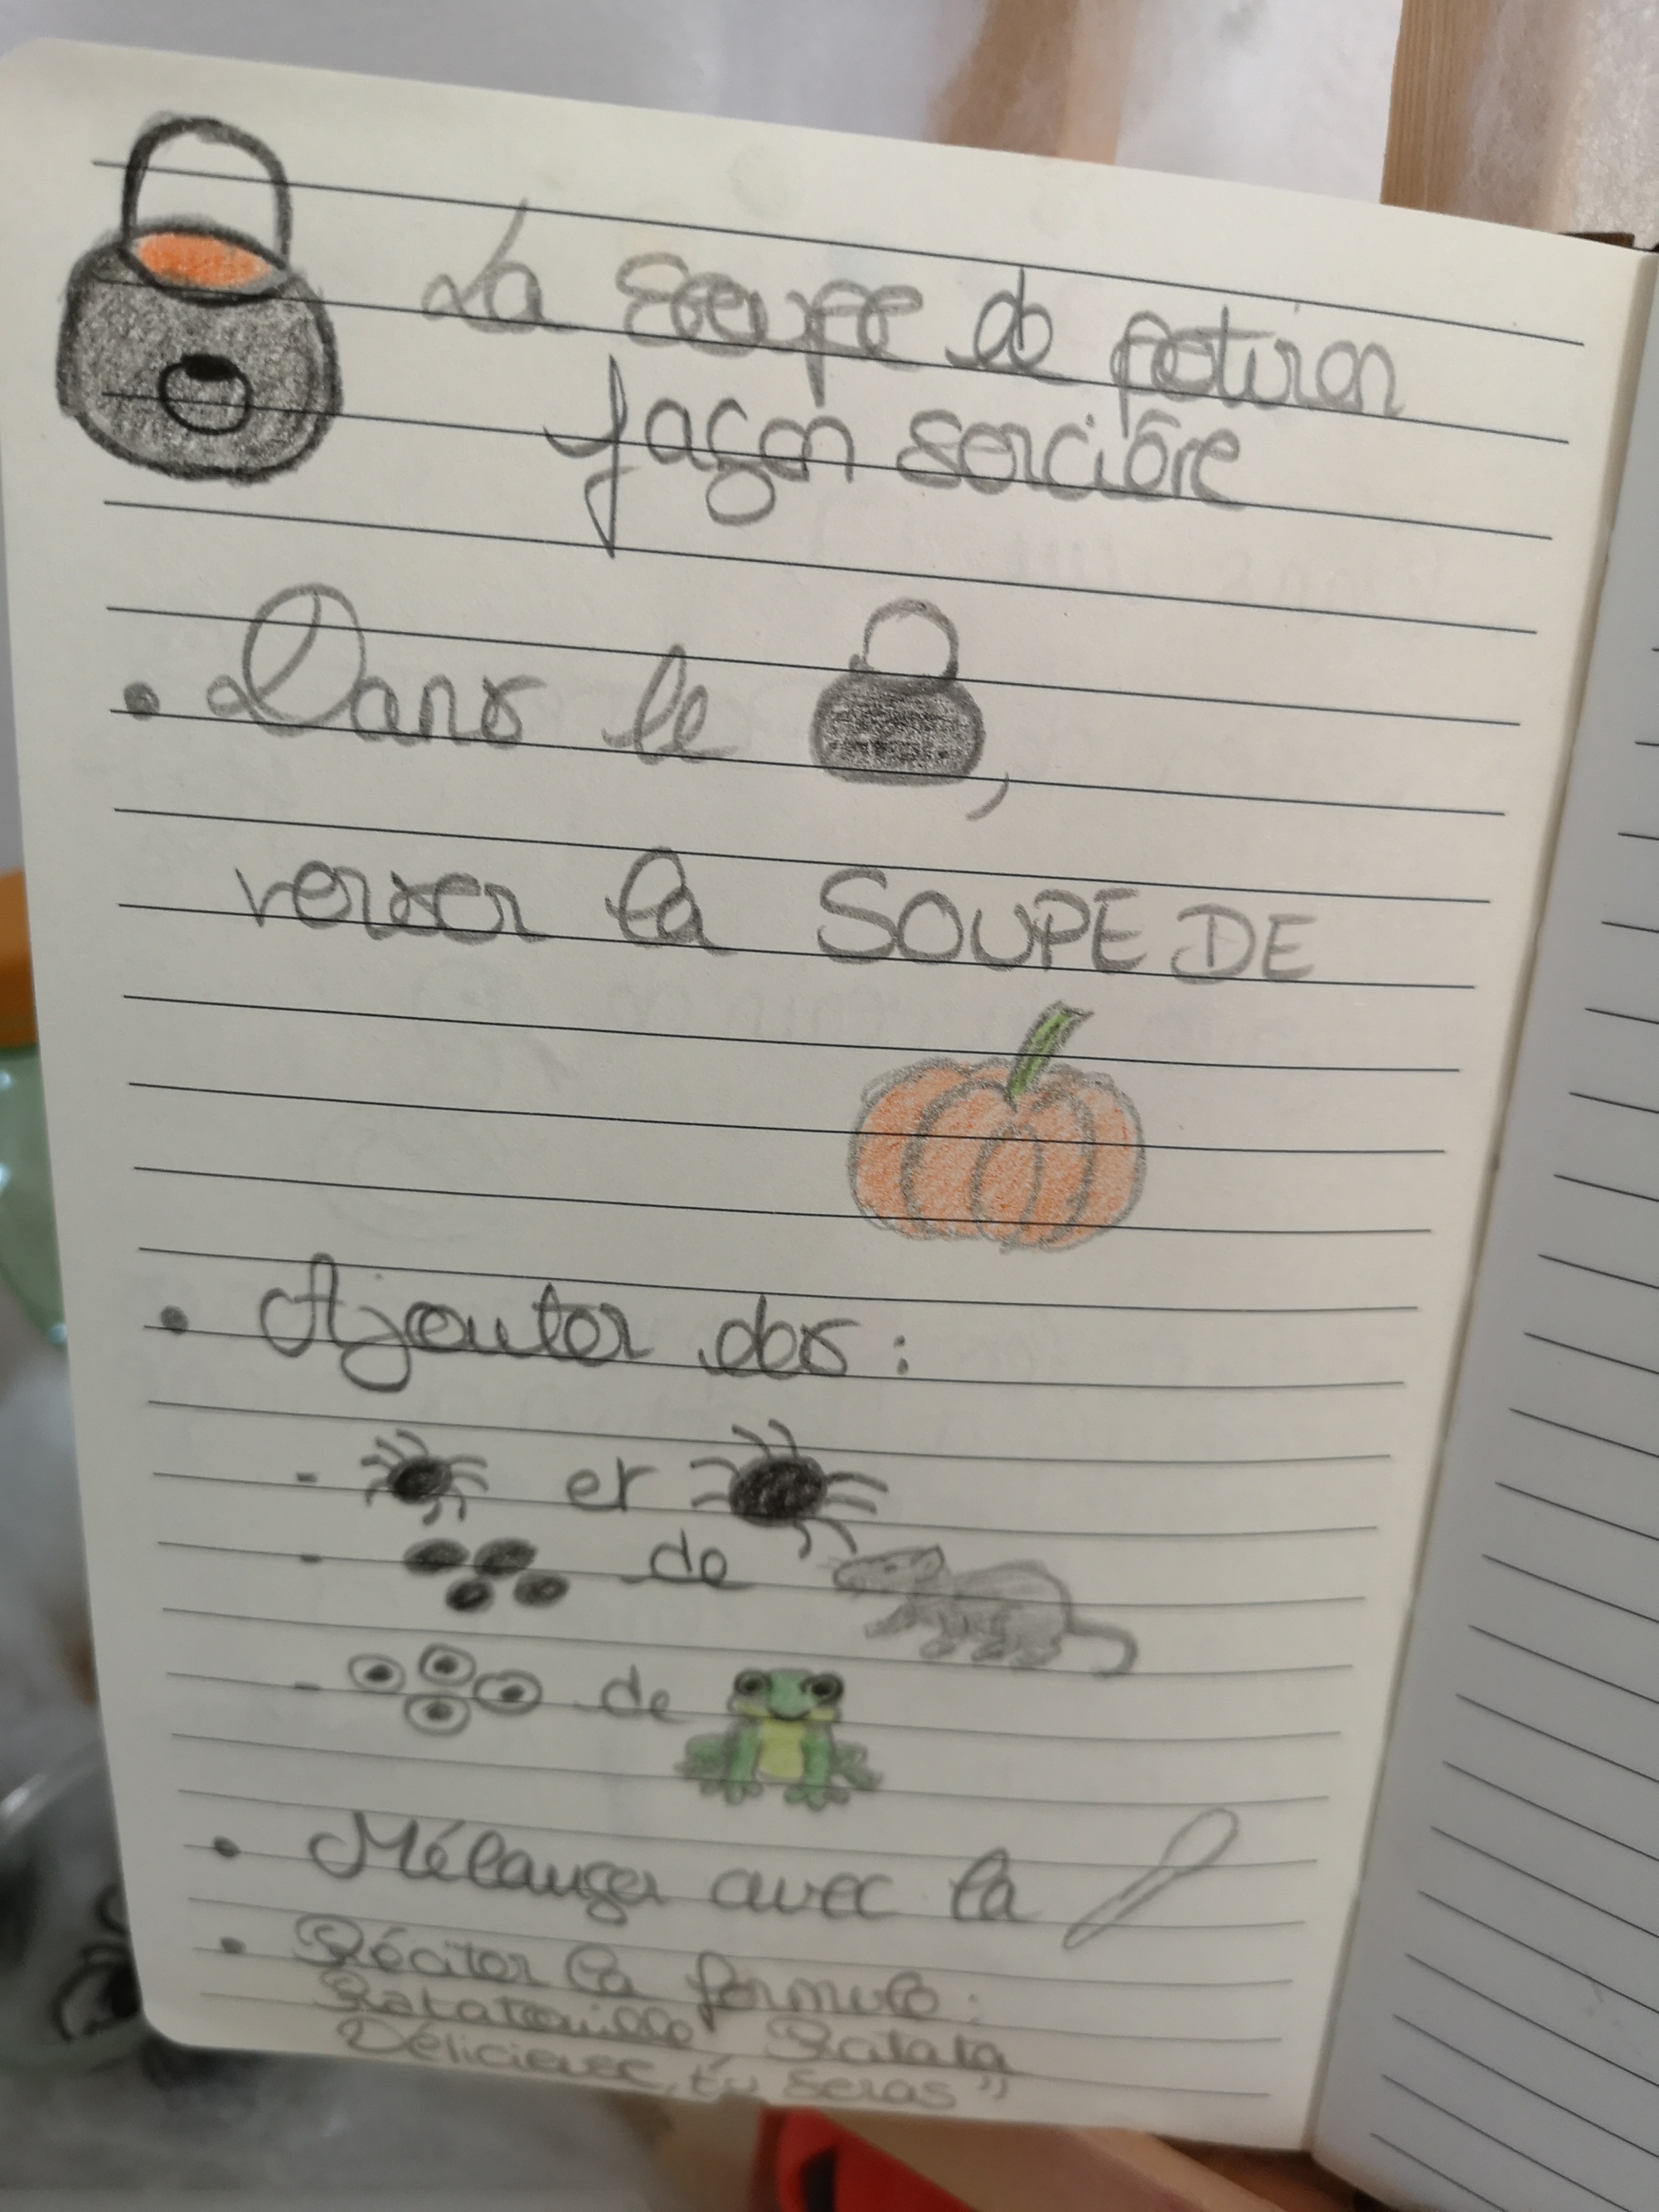 La soupe de potiron
façon sorcière
• Dans le ,
verser la SOUPE DE
• Ajouter des :
- et
- de
- de
• Mélanger avec la
• Réciter la formule :
Ratatouille, Ratata
Délicieuse, tu seras"